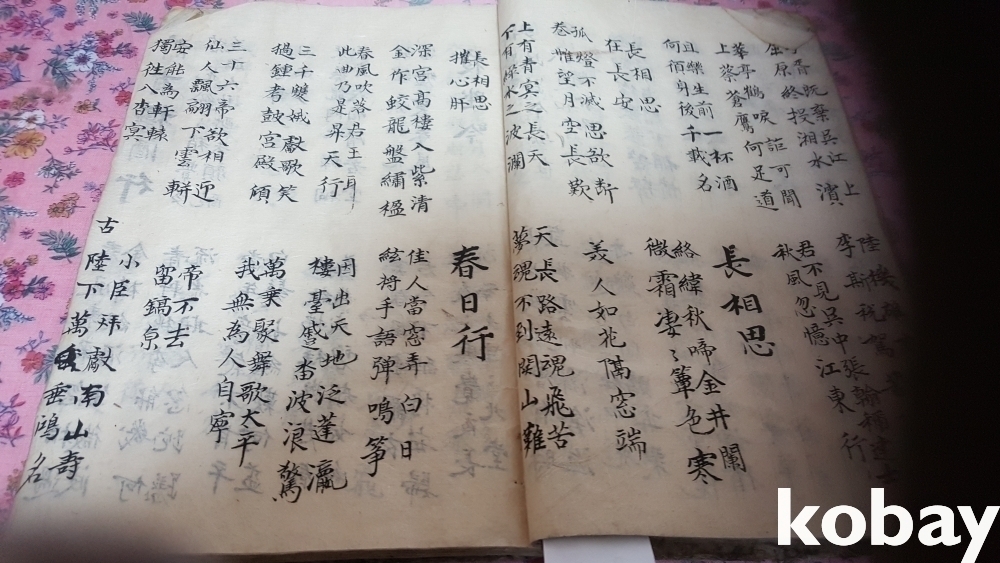 子胥既棄吳江上
屈原終投湘水濱
陸機
李斯稅駕
華亭鶴唳詎可聞
上蔡蒼鷹何足道
君不見吳中張翰稱達士
秋風忽憶江東行
且樂生前一杯酒
何佰身後千載名
長相思
長相思
在長安
絡緯秋啼金井闌
微霜凄〻簟色寒
孤燈不滅思欲斷
卷帷望月空長歎
美人如花隔窓端
上有青冥之長天
下有淥水之波瀾
天長路遠魂飛苦
夢魂不到関山難
長相思
摧心肝
春日行
深宮高樓入紫清
金作蛟龍盤繡楹
佳人當窓弄白日
絃将手語彈鳴箏
春風吹落君王耳
此曲乃是昇天行
因出天地泛蓬瀛
樓臺蹙沓波浪驚
三千雙娥獻歌笑
撾鍾考鼓宮殿傾
萬乗聚舞歌太平
我無為人自寧
三十六帝欲相近
仙人飄翩下雲軿
帝不去
留鎬京
安能為軒轅
獨往八杳冥
小臣拜獻南山壽
古
陛下萬垂鴻名
kobay